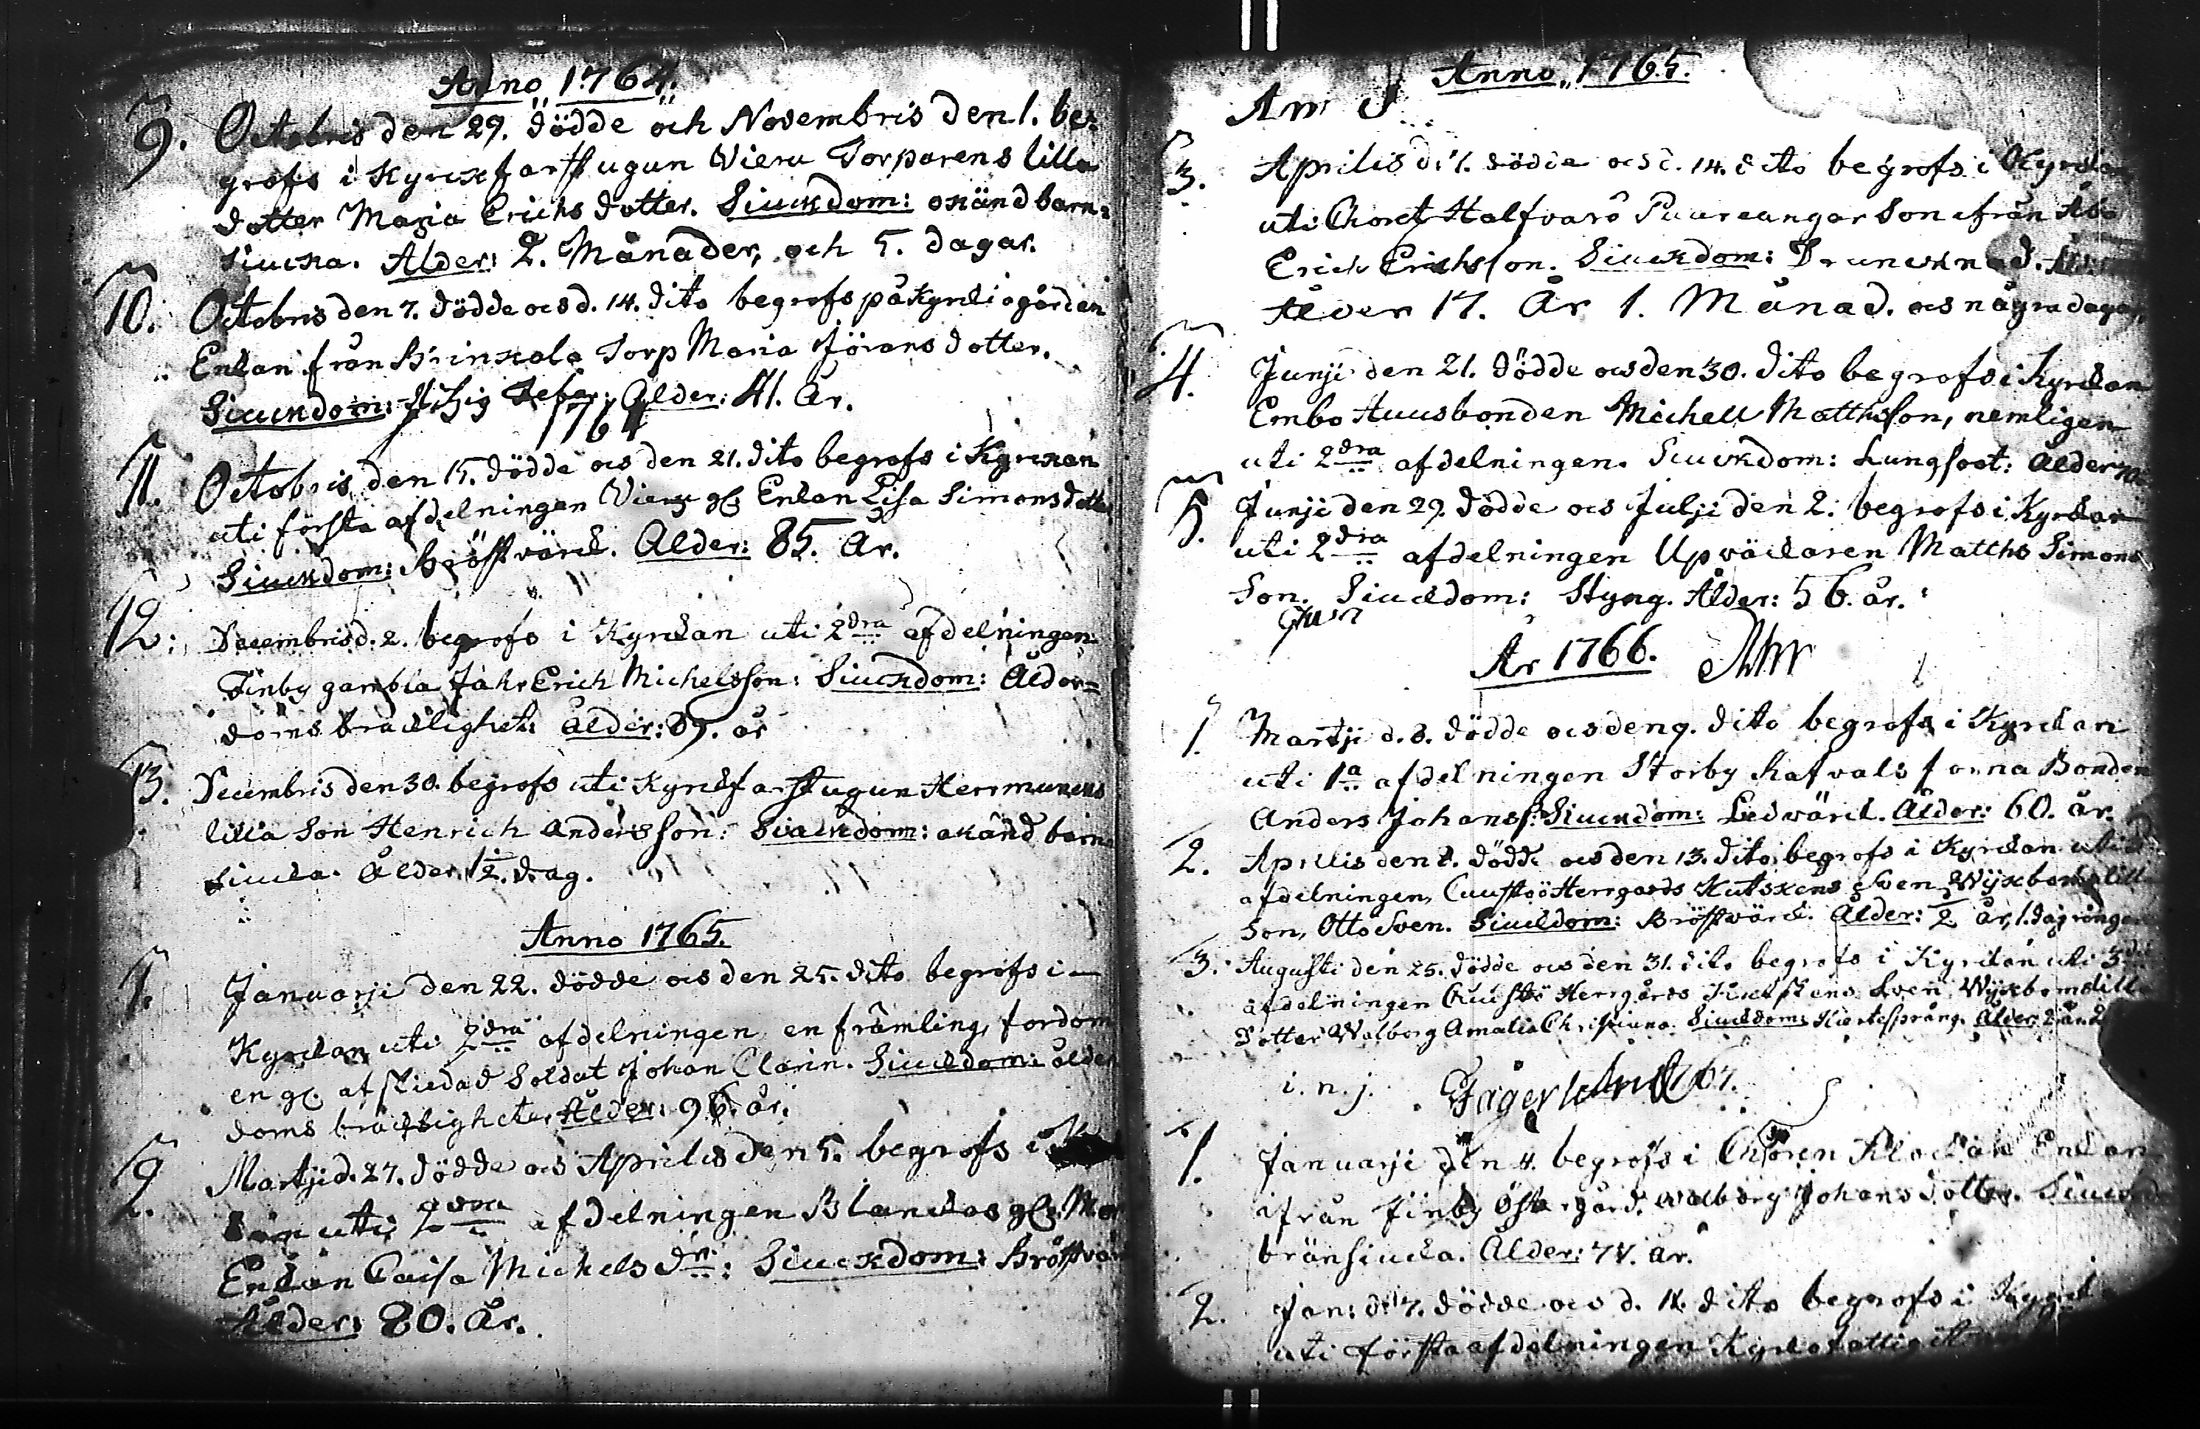 Anno 1764.
9. Octobris den 29. dödde och Novembris den 1. be-
grofs i Kyrckfarstugun Vieru Torparens lilla
dotter Maria Erichs dotter. Siuckdom: okänd barn-
siucka. Alder: 2. Månader, och 5. dagar.
10. Octobris den 7. dödde och d. 14. dito begrofs på Kyrckiogården
Enkan från Brinkala Torp Maria Jörans dotter.
Siuckdom: Hitzig Feber. Alder: 41. år.
1764
11. Octobris den 15. dödde och den 21. dito begrofs i Kyrckan
uti första afdelningen Vieru gl. Enkan Lisa Simonsdotter
Siuckdom: Bröstvärck. Alder: 85. År.
12. Decembris d. 2. begrofs i Kyrckan uti 2dra afdelningen
Finby gambla Fahr Erich Michelsson: Siuckdom: Ålder-
doms bräcklighet: ålder: 89. år
13. Decembris den 30. begrofs uti Kyrckfarstugun Herrmanens
lilla Son Henrich Andersson: Siuckdom: okänd barn-
siucka. Ålder 1/2. dag.
Anno 1765.
1. Januarji den 22. dödde och den 25. dito begrofs i
Kyrckan uti 2dra afdelningen en främling, fordom
en gl. afskiedad Soldat Johan Clarin. Siuckdom: ålder
doms bräcklighet. Ålder: 96. år.
2. Martji d. 27. dödde och Aprilis den 5. begrofs i
kan uti 2dra afdelningen Blanckas gl. Mor
Enkan Caisa Michels dr: Siuckdom: Bröstvär
Ålder: 80. År.
Anno 1765.
3. Aprilis d. 1. dödde och d. 14. dito begrofs i Kyrckan
uti Choret Halfvars Paareangar Son ifrån Åbo
Erich Erichsson. Siuckdom: Druncknad.
Ålder 17. År 1. Månad. och några dagar
4. Junji den 21. dödde och den 30. dito begrofs i Kyrckan
Embo Huusbonden Michell Matthsson, nemligen
uti 2dra afdelningen. Siuckdom: Lungsoot: ålder 70
5. Junji den 29. dödde och Julji den 2. begrofs i Kyrckan
uti 2dra afdelningen Upväckaren Matths Simons
Son. Siuckdom: Styng. Ålder: 56. år.
År 1766.
1. Martji d. 8. dödde och den 9. dito begrofs i Kyrckan
uti 1a afdelningen Storby Rafvals forna Bonden
Anders Johanss: Siuckdom: Ledvärck. Ålder: 60. år.
2. Aprillis den 8. dödde och den 13. dito begrofs i Kyrckan uti
afdelningen, Cuustöö Herrgårds Kutskens Sven Wijkboms lill
Son, Otto Sven. Siuckdom: Bröstvärck. Ålder: 1/2 år, 1. dag ringa
3. Augusti den 25. dödde och den 31. dito begrofs i Kyrckan uti 3die
afdelningen Cuustö Herrgårds Kutskens Sven Wijkboms lilla
Dotter Walborg Amalia Christiana. Siuckdom: Hiertesprång. Ålder: 2 år.
i. n. j.
1. Januarji den 4. begrofs i Choren Klockare Enckan
ifrån Finby Östergård. Walborg Johans dotter. Siuck
bränsiucka. Ålder: 74. år.
2. Jan: d. 7. dödde och d. 11. dito begrofs i Kyrck
uti första afdelningen Kyrckofattig